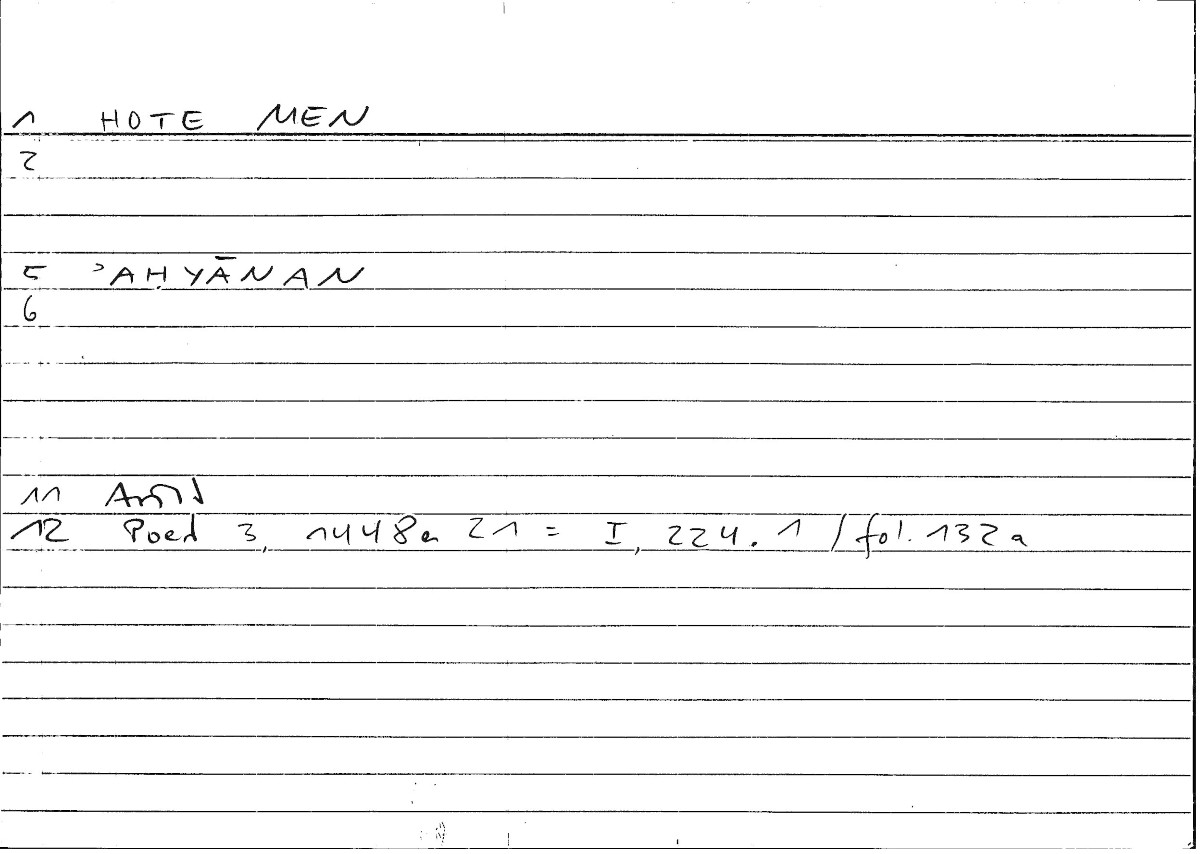 1 HOTE MEN
2
5 ʾAḤYĀNAN
6
11
12 Poet 3, 1448a 21 = I, 224.1 / fol. 132a